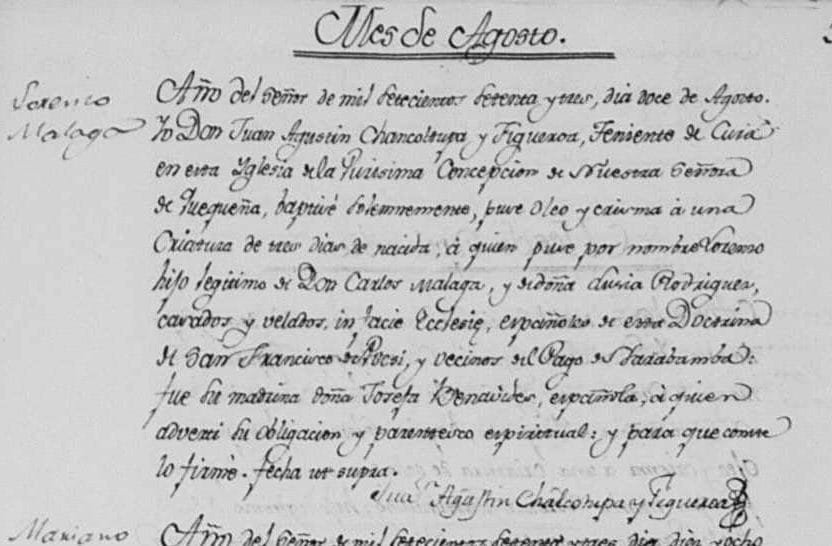 Mes de Agosto.
Lorenzo
Malaga
Año del Señor de mil setecientos setenta y tres, dia doce de Agosto.
Yo Don Juan Agustin ChancolLupa y Figueroa, Teniente de Cura
en esta Yglesia de la Purisima Concepcion de Nuestra Señora
de Quequeña, baptizé solemnemente, puse oleo y crisma à una
Criatura de tres dias de nacida, à quien puse por nombre Lorenzo
hijo legitimo de Don Carlos Malaga, y de doña Rodriguez,
casados y velados, in facie Ecclesię, españoles de esta Doctrina
de San Francisco de Pocsi, y vecinos del Pago de :
fue su madrina doña Josefa Benavides, española, à quien
adverti su obligacion y parentesco espiritual: y para que conste
lo firmè. fecha ut supra.
Juaⁿ Agustin y Figueroa
Mariano
Año del Señor de mil setecientos setenta y tres dia diez y ocho